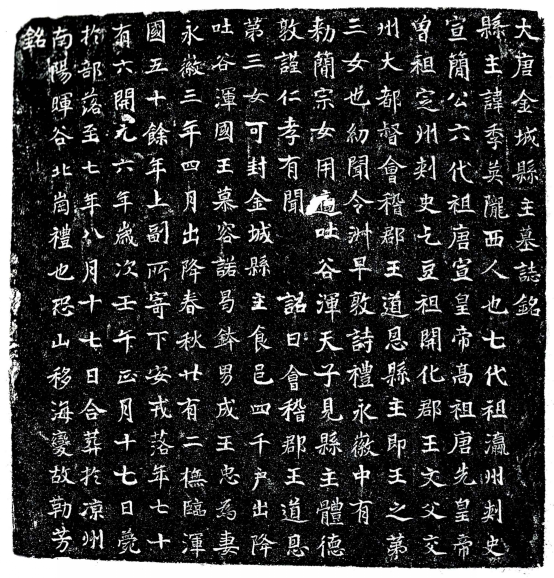 大唐金城縣主墓誌銘
縣主諱季英隴西人也七代祖瀛州刾史
宣簡公六代祖唐宣皇帝高祖唐先皇帝
曽祖定州刾史乞豆祖開化郡王文父交
州大都督會稽郡王道恩縣主即王之第
三女也幼聞令淑早敦詩禮永徽中有
勑簡宗女用適吐谷渾天子見縣主體德
敦謹仁孝有聞 詔曰會稽郡王道恩
第三女可封金城縣主食邑四千户出降
吐谷渾國王慕容諾曷鉢男成王忠為妻
永徽三年四月出降春秋廿有二撫臨渾
國五十餘年上副所寄下安戎落年七十
有六開元六年歲次壬午正月十七日薨
於部落至七年八月十七日合葬於凉州
南陽暉谷北崗禮也恐山移海變故勒芳
銘